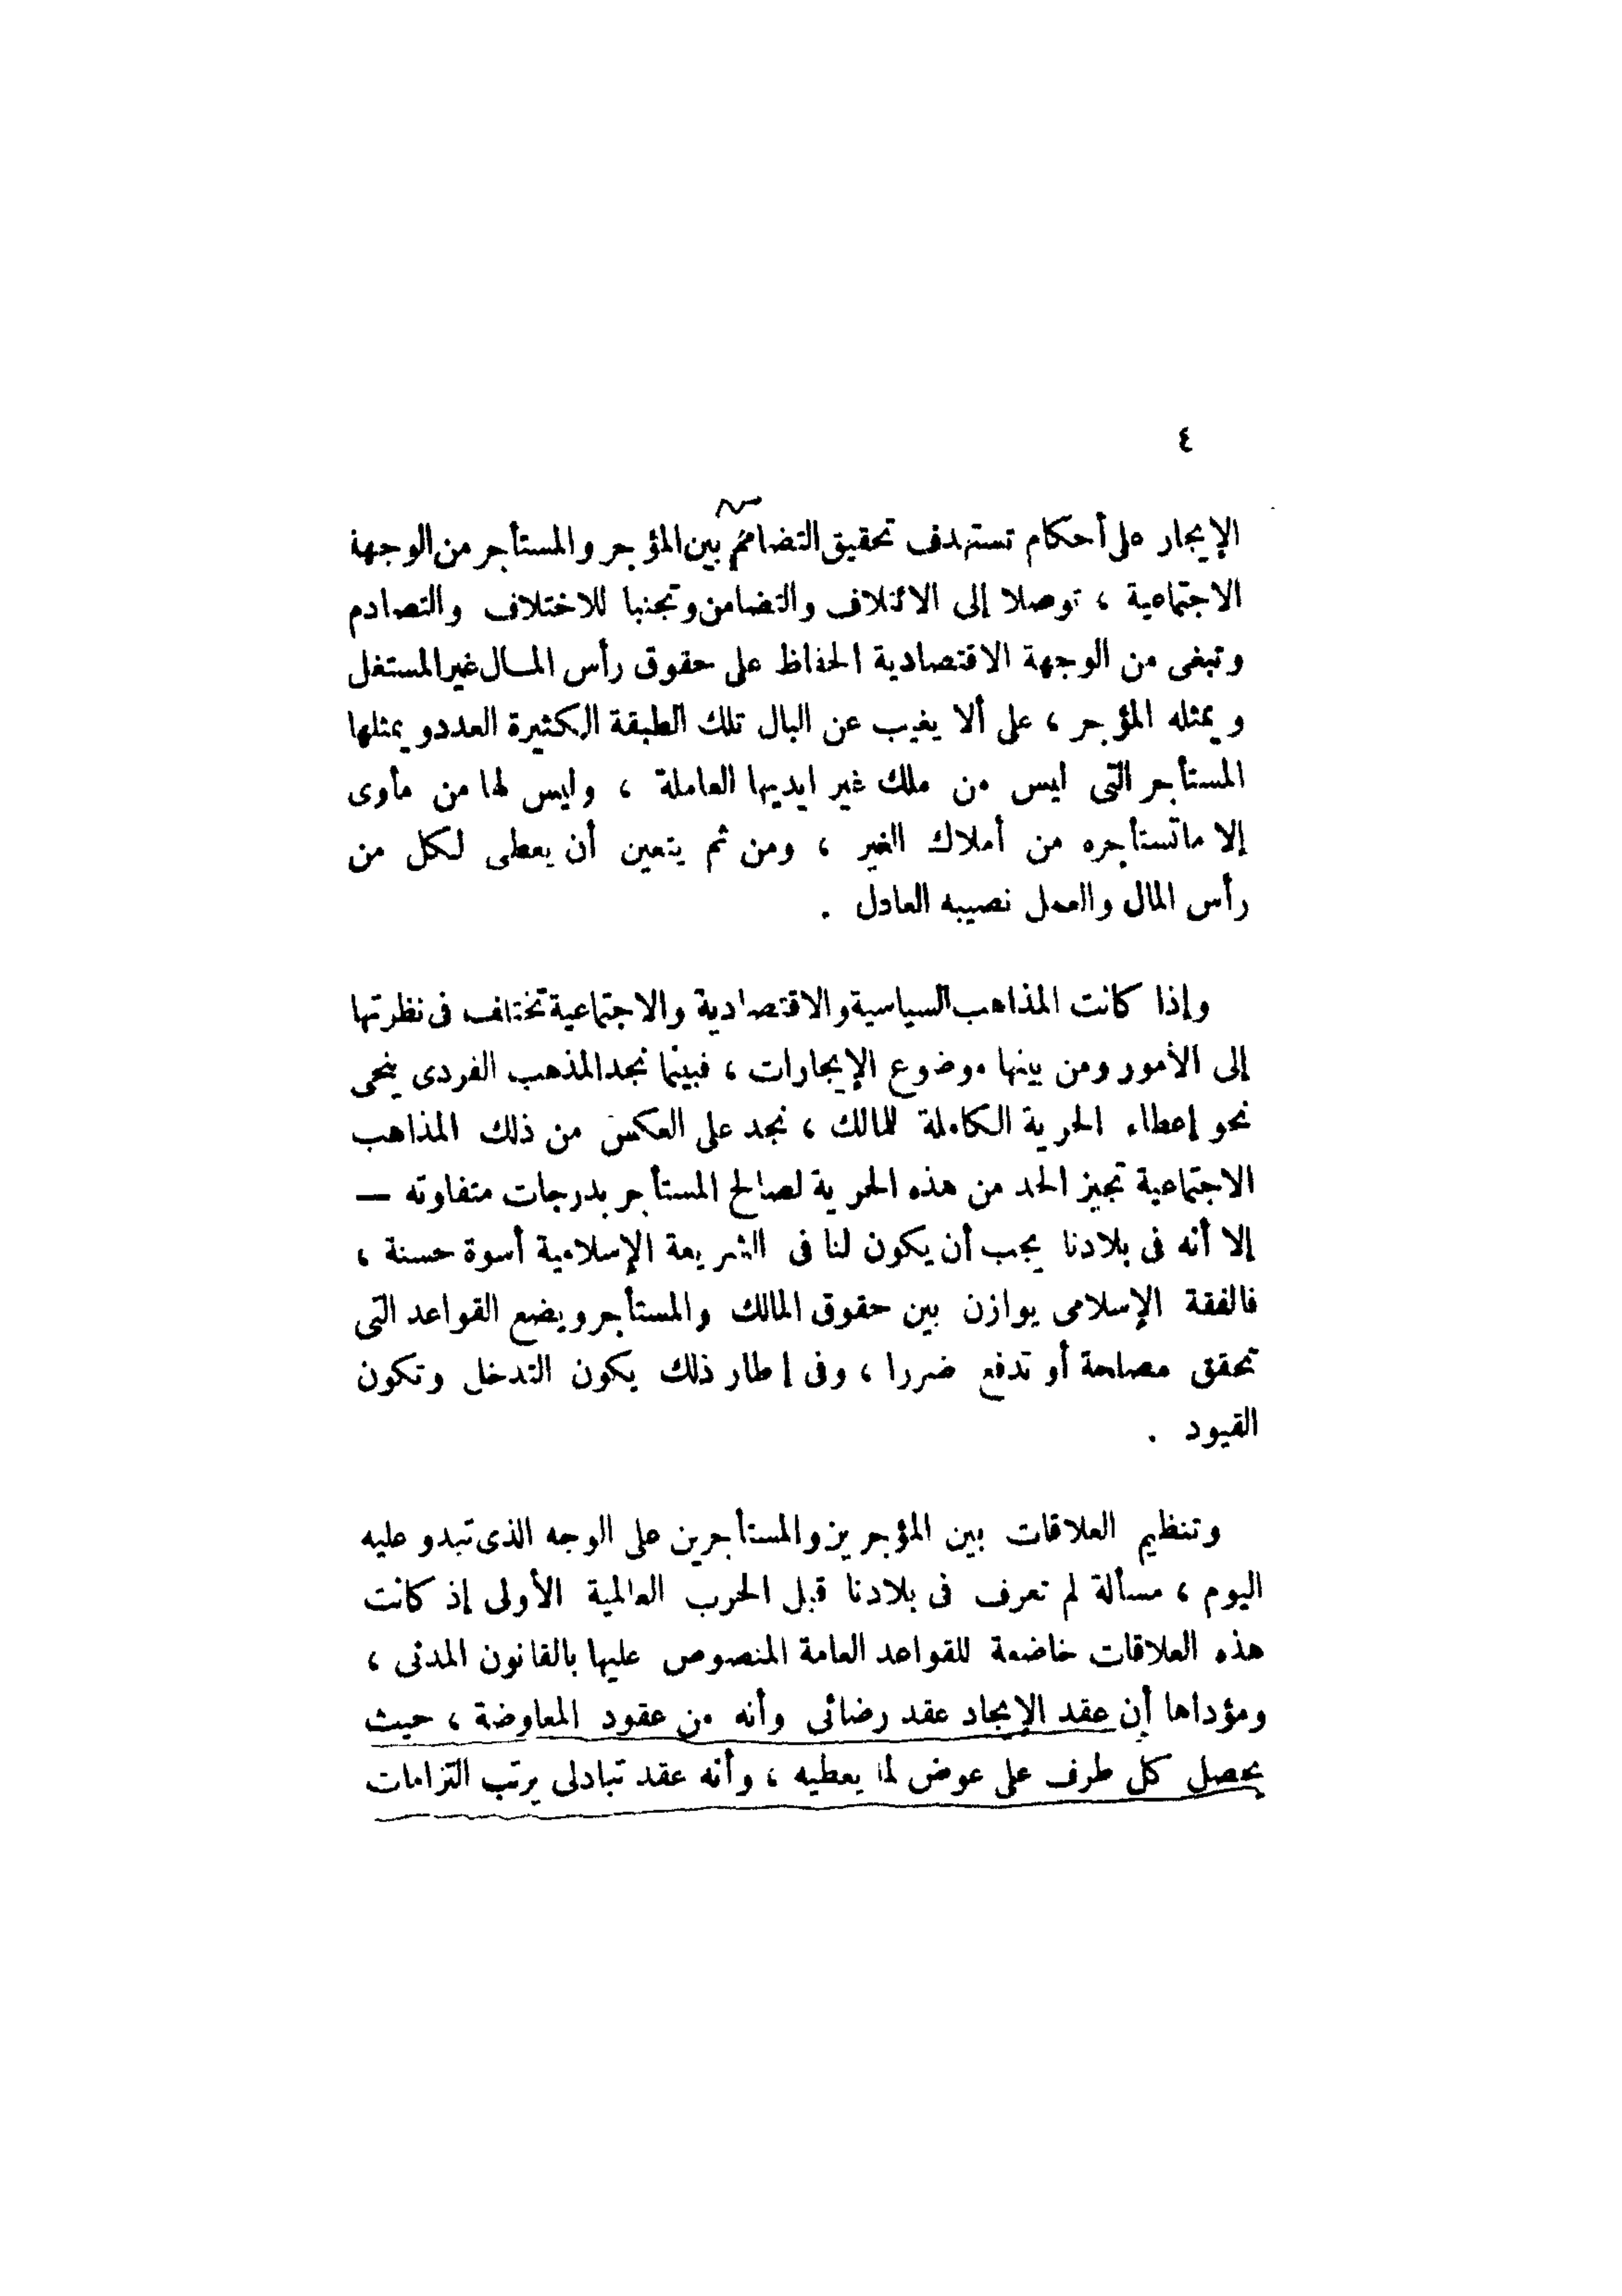 ٤
الإيجار على أحكام تستهدف تحقيق التضامن بين المؤجر والمستأجر من الوجهة
الاجتماعية ، توصلا إلى الائتلاف والتضامن وتجنبا للاختلاف والتصادم
وتبغى من الوجهة الاقتصادية الحفاظ على حقوق رأس المال غير المستغل
ويمثله المؤجر ، على ألا يغيب عن البال تلك الطبقة الكثيرة العدد ويمثلها
المستأجر التى ليس من ملك غير ايديها العاملة ، وليس لها من مأوى
إلا ماتستأجره من أملاك الغير ، ومن ثم يتعين أن يعطى لكل من
رأس المال والعمل نصيبه العادل .
وإذا كانت المذاهب السياسية والاقتصادية والاجتماعية تختلف فى نظرتها
إلى الأمور ومن بينها موضوع الإيجارات ، فبينما نجد المذهب الفردى ينحى
نحو إعطاء الحرية الكاملة للمالك ، نجد على العكس من ذلك المذاهب
الاجتماعية تجيز الحد من هذه الحرية لصالح المستأجر بدرجات متفاوته —
إلا أنه فى بلادنا يجب أن يكون لنا فى الشريعة الإسلامية أسوة حسنة ،
فالفقة الإسلامى يوازن بين حقوق المالك والمستأجر ويضع القواعد التى
تحقق مصلحة أو تدفع ضررا ، وفى إطار ذلك يكون التدخل وتكون
القيود .
وتنظيم العلاقات بين المؤجرين والمستأجرين على الوجه الذى تبدو عليه
اليوم ، مسألة لم تعرف فى بلادنا قبل الحرب العالمية الأولى إذ كانت
هذه العلاقات خاضعة للقواعد العامة المنصوص عليها بالقانون المدنى ،
ومؤداها أن عقد الإيجاد عقد رضائى وأنه من عقود المعاوضة ، حيث
يحصل كل طرف على عوض لما يعطيه ، وأنه عقد تبادلى يرتب التزامات